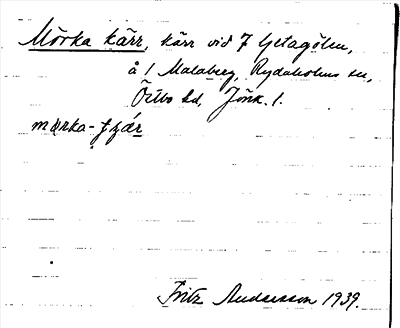 Mörka kärr, kärr vid 7 Getagölen,
å 1 Malaberg, Rydaholms sn,
Östbo hd, Jönk. l.
Fritz Andersson 1939.